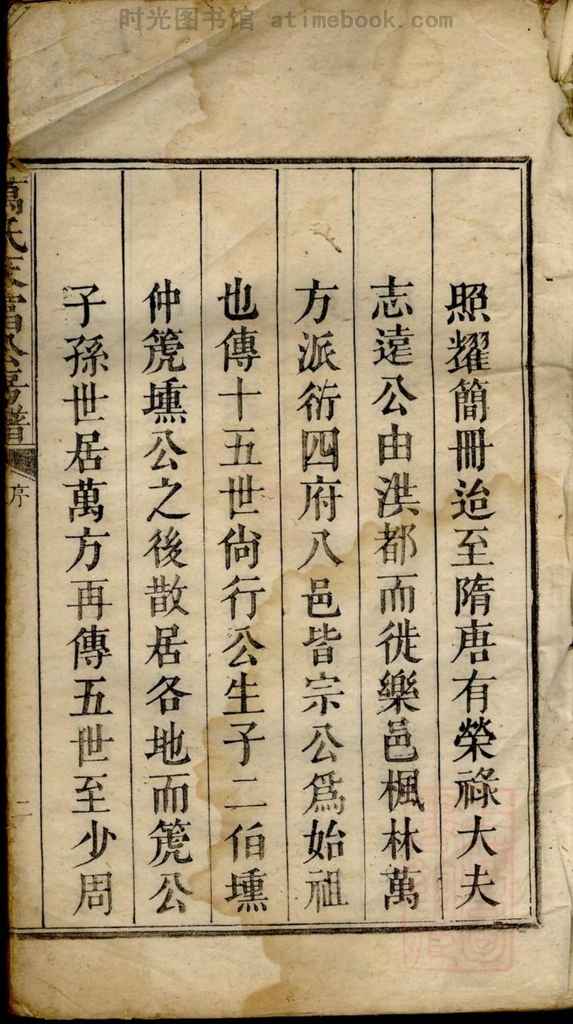 时光图书馆 atimebook.com
照耀簡冊迨至隋唐有榮祿大夫
志遠公由洪都而徙樂邑楓林萬
方派衍四府八邑皆宗公爲始祖
也傳十五世尙行公生子二伯壎
仲篪壎公之後散居各地而篪公
子孫世居萬方再傳五世至少周
萬氏富公房譜
序
二